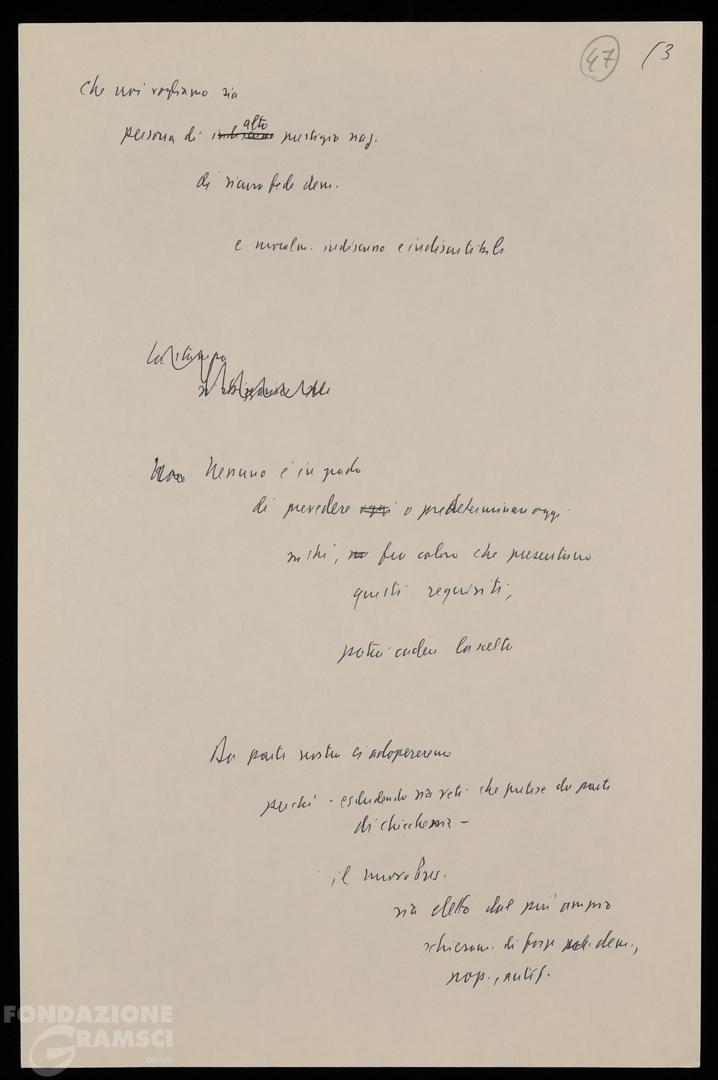 47
13
Che noi vogliamo sia
persona di alto prestigio naz.
di sicura fede dem.
e moralm. indiscusso e indiscutibile
La stampa
Nessuno è in grado
di prevedere oggi o predeterminare oggi
su chi, fra coloro che presentano
questi requisiti,
potrà cadere la scelta
Da parte nostra ci adopereremo
perché - escludendo sia veti che pretese da parte
di chicchessia -
il nuovo Pres.
sia eletto dal più ampio
schieram. di forze dem.,
pop., antif.
FONDAZIONE
GRAMSCI
onlus